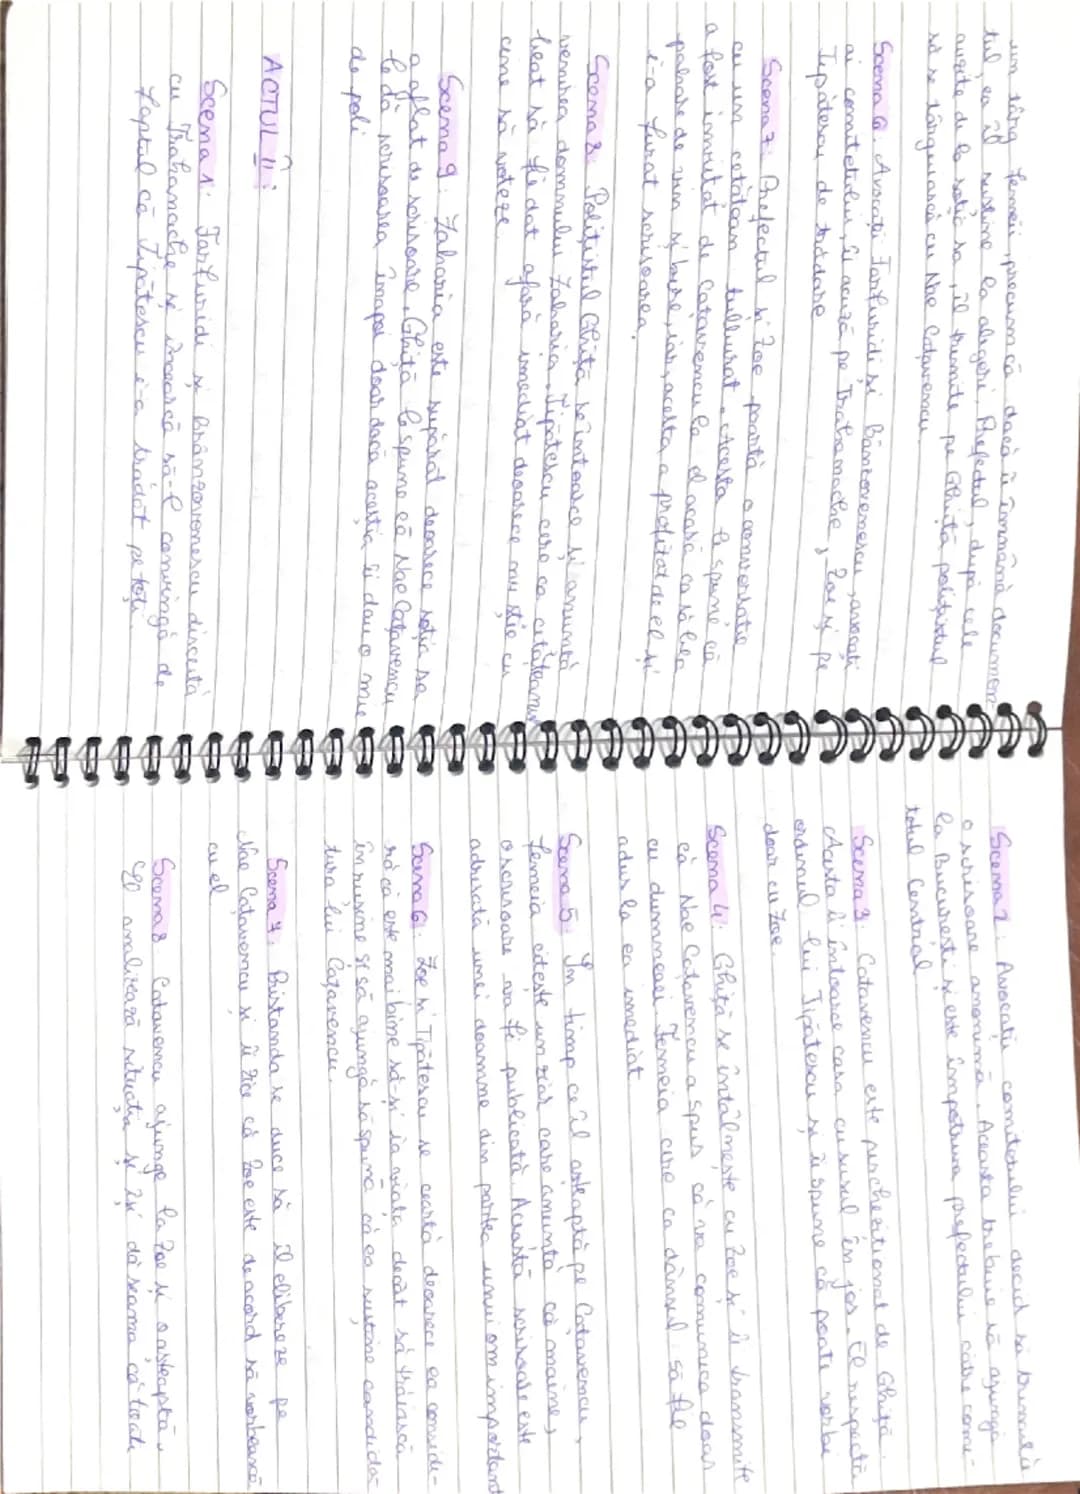 un târg femeii, precum că dacă îi înmână documen-
tul, ea îl susține la alegeri. Prefectul, după cele
auzite de la soția sa, îl trimite pe Ghiță polițistul
să se târguiască cu Nae Cațavencu.
Scena 6: Avocații Farfuridi și Bânzovenescu, avocați
ai comitetului, îi acuză pe Trahanache, Zoe și pe
Tipătescu de trădare
Scena 7: Prefectul și Zoe poartă o conversație
cu un cetățean tulburat. Acesta le spune că
a fost invitat de Catavencu la el acasă ca să bea
pahare de vin și bere, iar, acesta, a profitat de el și
i-a furat scrisoarea.
Scena 8: Polițistul Ghiță se întoarce și anunță
venirea domnului Zaharia. Tipătescu cere ca cetățeanul
beat să fie dat afară imediat deoarece nu știe cu
cine să voteze.
Scena 9: Zaharia este supărat deoarece soția sa
a aflat de scrisoare. Ghiță le spune că Nae Cațavencu
le dă scrisoarea înapoi doar dacă aceștia îi dau o mie
de poli
ACTUL II:
Scena 1: Farfuridi și Brânzovenescu discută
cu Trahanache și încearcă să-l convingă de
faptul că Tipătescu i-a trădat pe toți.
Scena 2: Avocații comitetului decid să trimită
o scrisoare anonimă. Aceasta trebuie să ajungă
la București și este împotriva prefectului către comi-
tetul Central.
Scena 3: Catavencu este percheziționat de Ghiță.
Acesta îi întoarce casa cu susul în jos. El respectă
ordinul lui Tipătescu și îi spune că poate vorbi
doar cu Zoe.
Scena 4: Ghiță se întâlnește cu Zoe și îi transmite
că Nae Cațavencu a spus că va comunica doar
cu dumneaei. Femeia cere ca dânsul să fie
adus la ea imediat
Scena 5: În timp ce îl așteaptă pe Catavencu,
femeia citește un ziar care anunță că mâine,
o scrisoare va fi publicată. Această scrisoare este
adresată unei doamne din partea unui om important
Scena 6: Zoe și Tipătescu se ceartă deoarece ea conside-
ră că este mai bine să-și ia viața decât să trăiască
în rușine și să ajungă să spună că ea susține candida-
tura lui Cațavencu.
Scena 7: Pristanda se duce să îl elibereze pe
Nae Cațavencu și îi zice că Zoe este de acord să vorbească
cu el
Scena 8: Catavencu ajunge la Zoe și o așteaptă.
analizează situația și își dă seama că toate